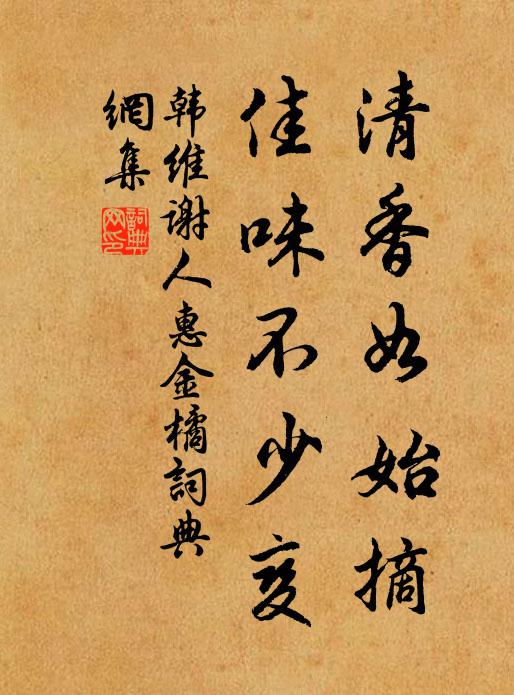 清香如始摘
佳味不少变
韩维谢人惠金橘詞典
網集
詞典
网印